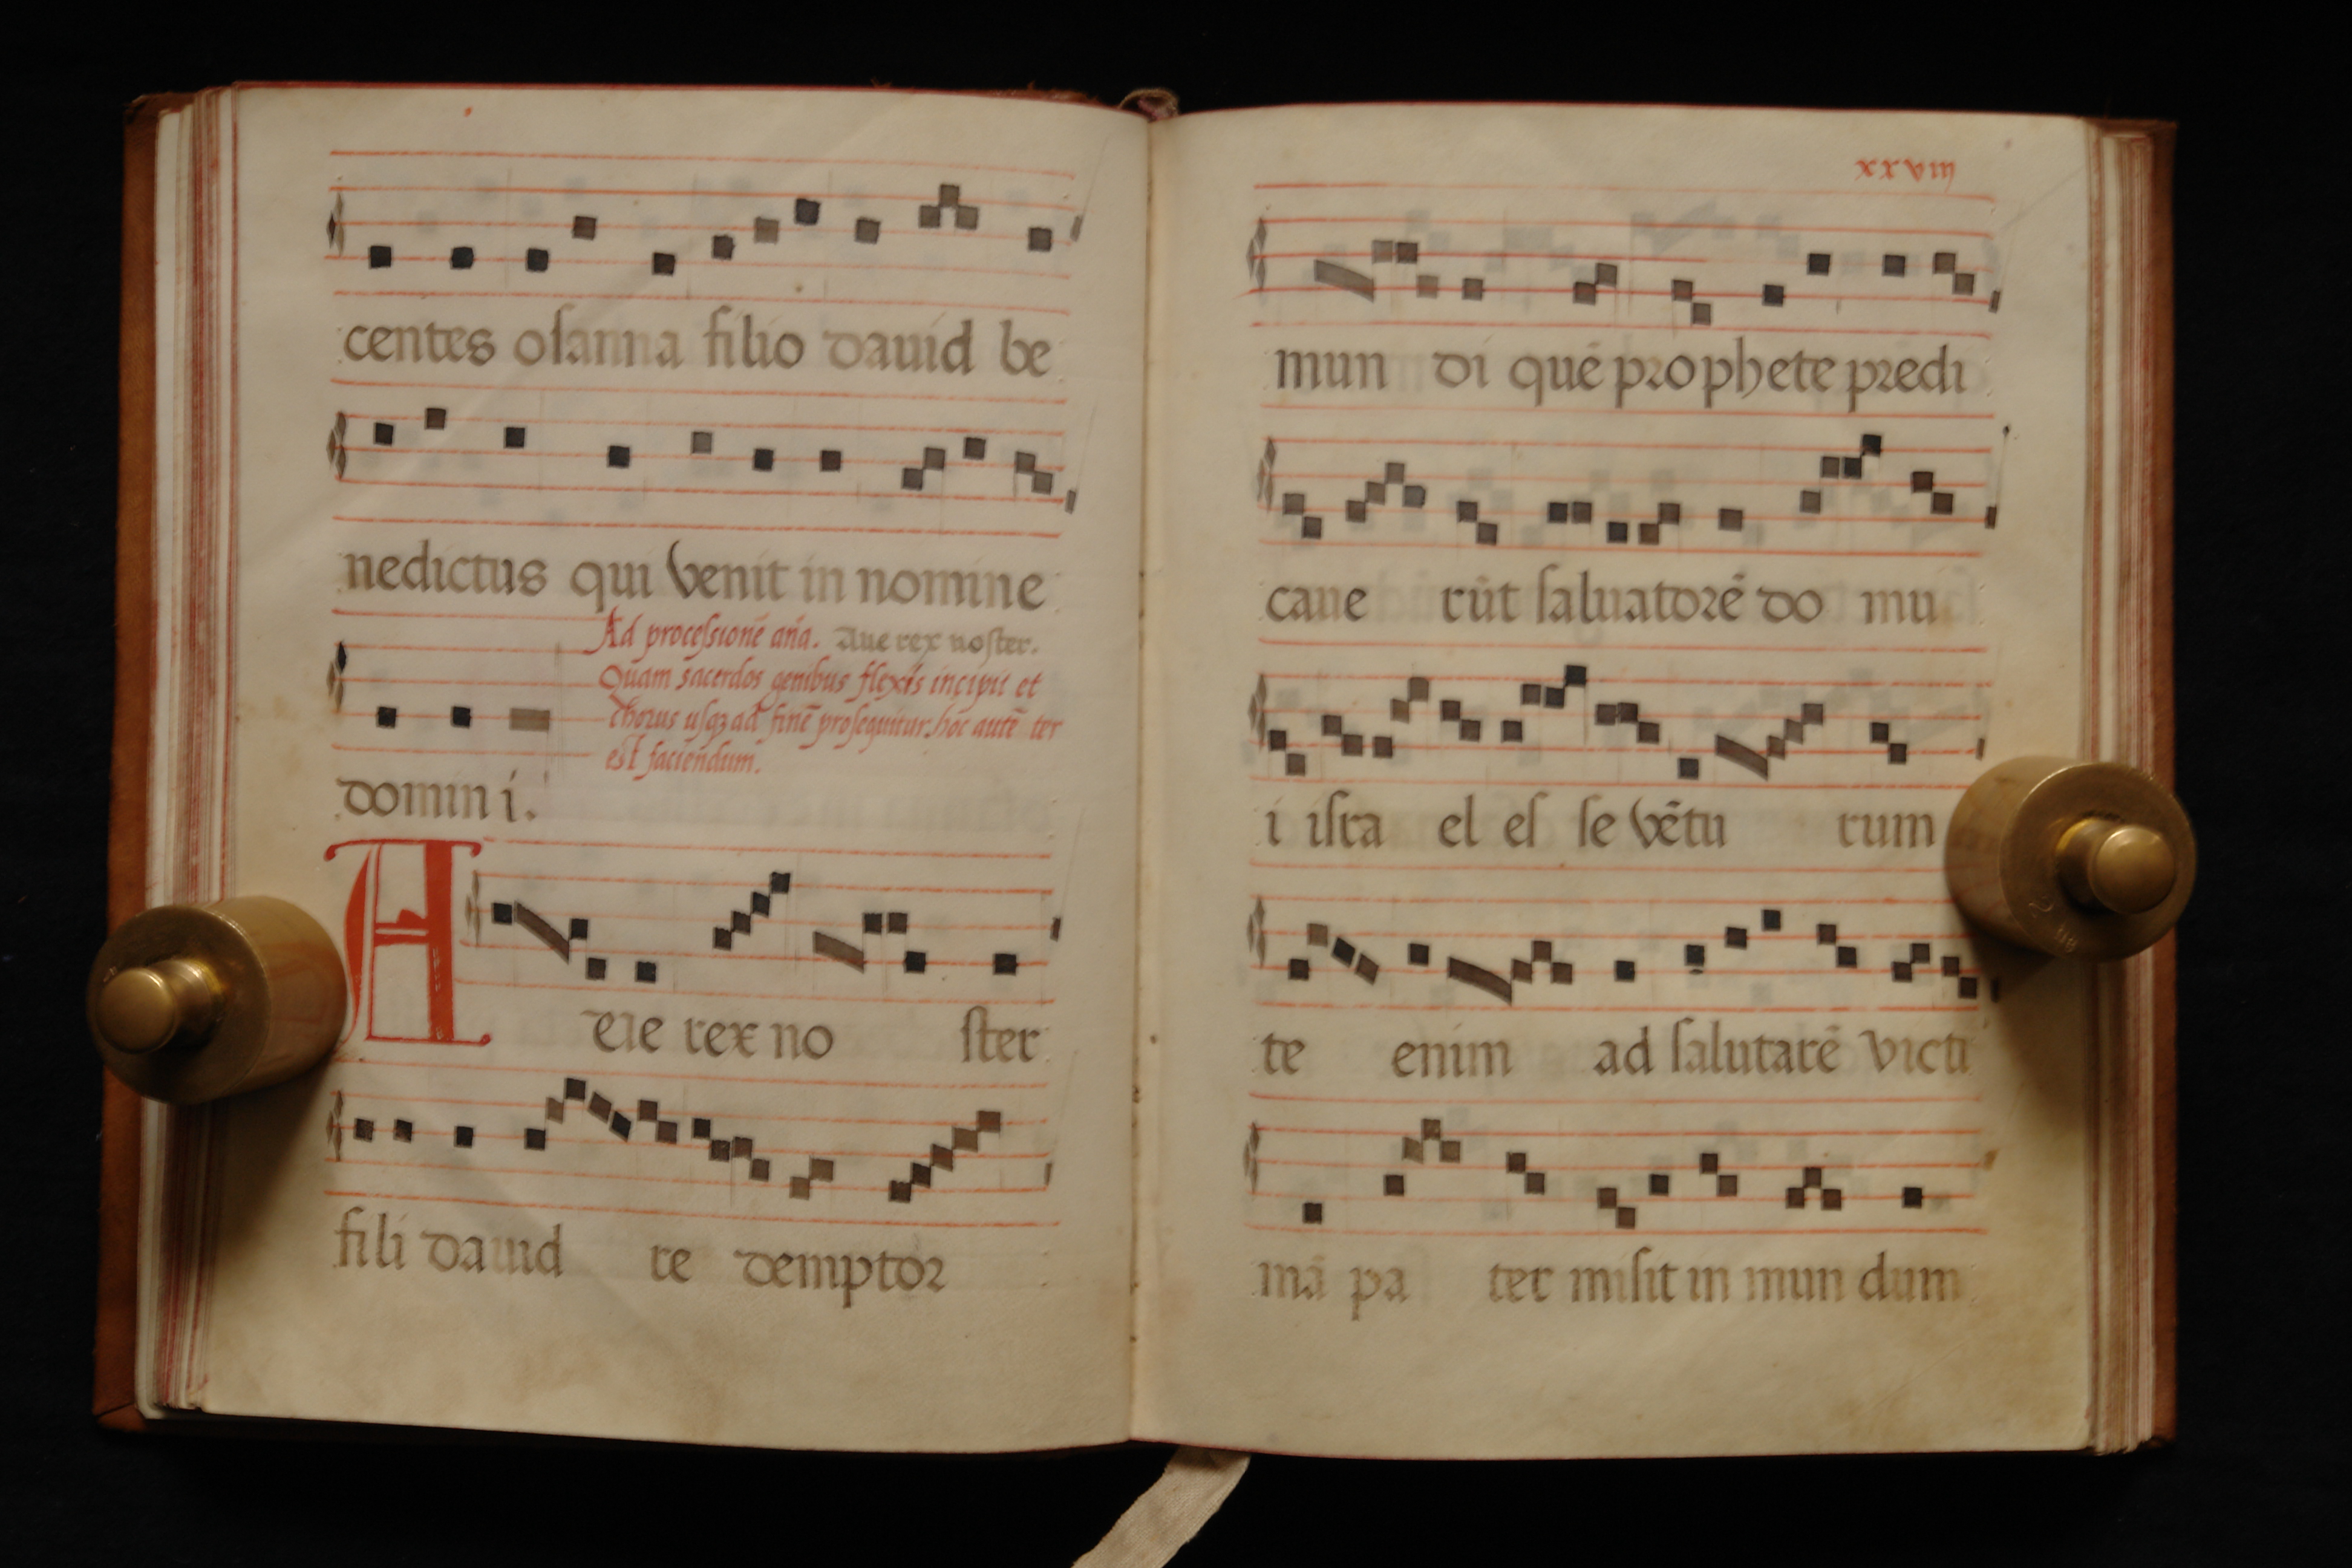 centes osanna filio dauid be
nedictus qui venit in nomine
Ad processionē aña. Aue rex noster.
Quam sacerdos genibus flexis incipit et
chorus usq; ad finē prosequitur. hoc autē ter
est faciendum.
domin i.
A eue rex no ster
fili dauid re demptor
xxviij
mun di quē prophete predi
caue rūt saluatorē do mu
i isra el es se vētu rum
te enim ad salutarē victi
mā pa ter misit in mun dum